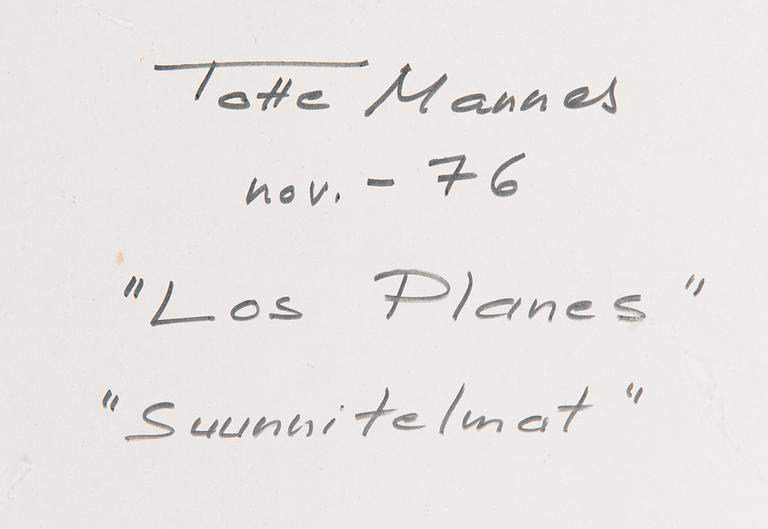 Totte Mannes
nov. - 76
"Los Planes"
"Suunnitelmat"